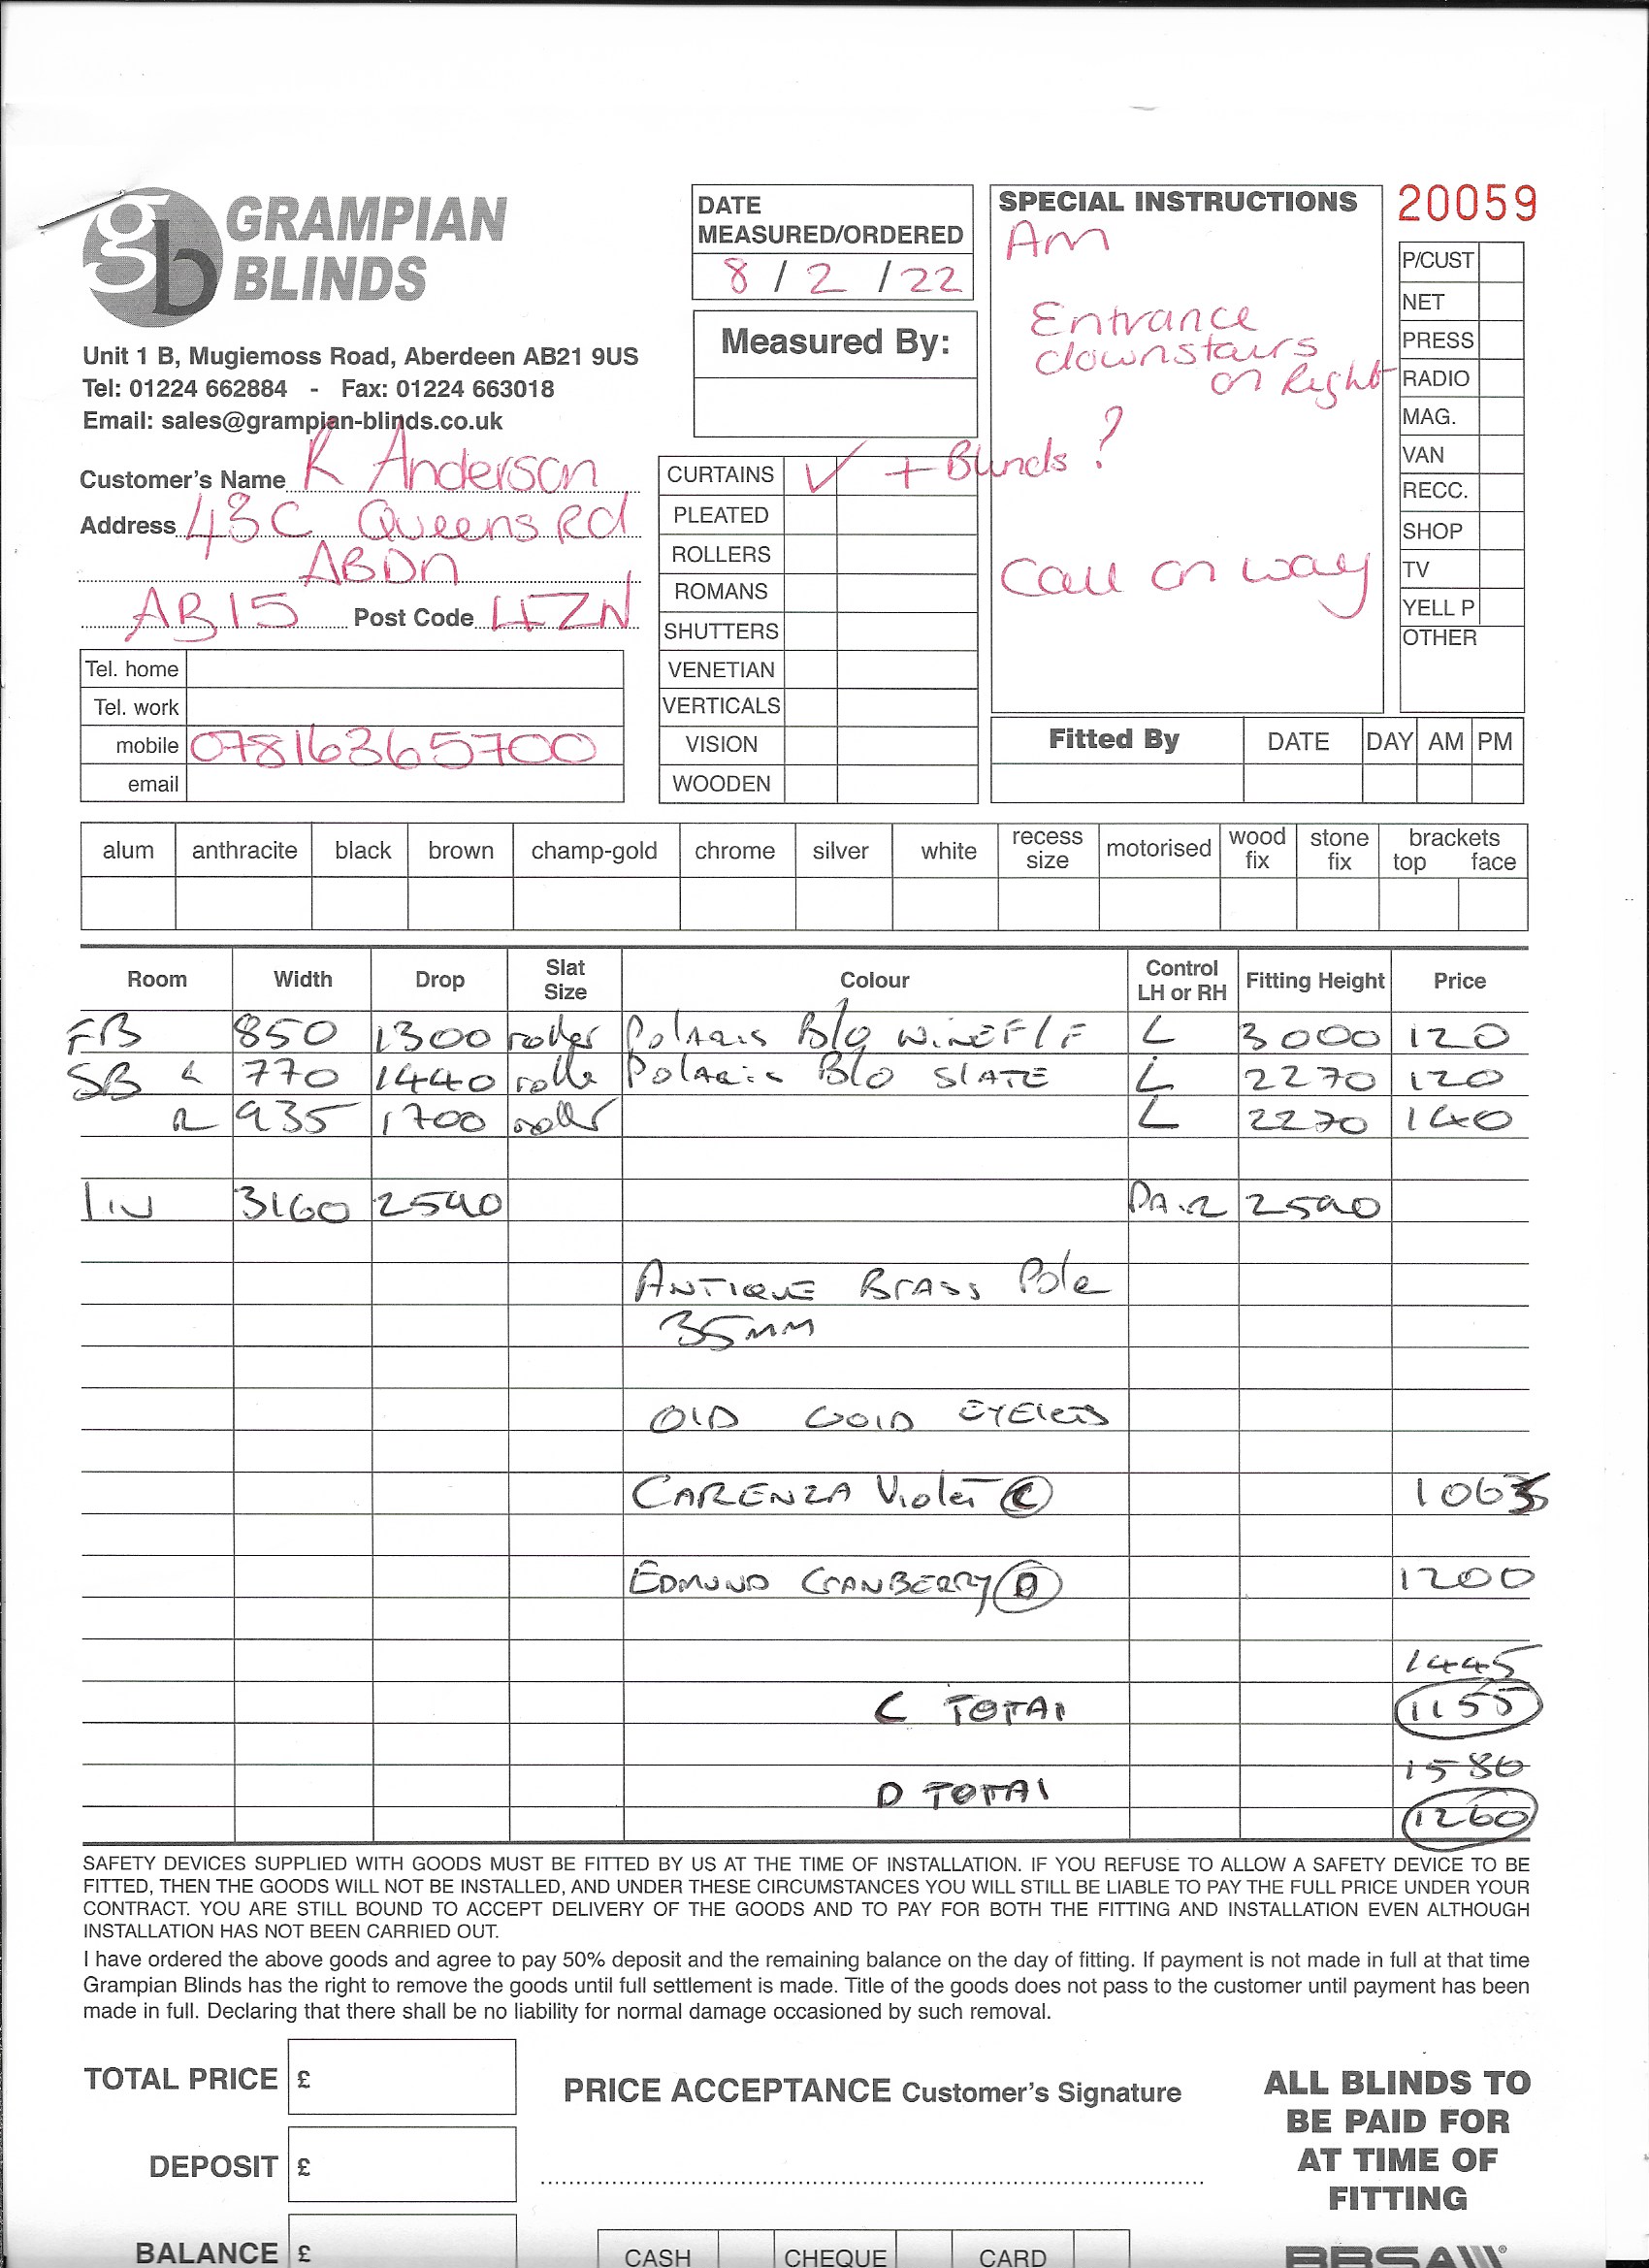 gb GRAMPIAN BLINDS
Unit 1 B, Mugiemoss Road, Aberdeen AB21 9US
Tel: 01224 662884 - Fax: 01224 663018
Email: sales@grampian-blinds.co.uk
Customer's Name R Anderson
Address 43C Queens Rd
ABDN
AB15 Post Code 4ZN
Tel. home
Tel. work
mobile 07816365700
email
DATE
MEASURED/ORDERED
8 / 2 / 22
Measured By:
CURTAINS ✓ + Blinds ?
PLEATED
ROLLERS
ROMANS
SHUTTERS
VENETIAN
VERTICALS
VISION
WOODEN
SPECIAL INSTRUCTIONS
Am
Entrance
downstairs
on Right
Call on way
20059
P/CUST
NET
PRESS
RADIO
MAG.
VAN
RECC.
SHOP
TV
YELL P
OTHER
Fitted By DATE DAY AM PM
alum anthracite black brown champ-gold chrome silver white recess size motorised wood fix stone fix brackets top face
Room Width Drop Slat Size Colour Control LH or RH Fitting Height Price
FB 850 1300 roller Polaris B/O WINE F/F L 3000 120
SB L 770 1440 roller Polaris B/O SLATE L 2270 120
R 935 1700 roller L 2270 140
LIV 3160 2590 PAIR 2590
ANTIQUE BRASS Pole
35MM
OLD GOLD EYELETS
CARENZA Violet C 1065
EDMUND CRANBERRY D 1200
1445
C TOTAL 1155
1580
D TOTAL
1260
SAFETY DEVICES SUPPLIED WITH GOODS MUST BE FITTED BY US AT THE TIME OF INSTALLATION. IF YOU REFUSE TO ALLOW A SAFETY DEVICE TO BE
FITTED, THEN THE GOODS WILL NOT BE INSTALLED, AND UNDER THESE CIRCUMSTANCES YOU WILL STILL BE LIABLE TO PAY THE FULL PRICE UNDER YOUR
CONTRACT. YOU ARE STILL BOUND TO ACCEPT DELIVERY OF THE GOODS AND TO PAY FOR BOTH THE FITTING AND INSTALLATION EVEN ALTHOUGH
INSTALLATION HAS NOT BEEN CARRIED OUT.
I have ordered the above goods and agree to pay 50% deposit and the remaining balance on the day of fitting. If payment is not made in full at that time
Grampian Blinds has the right to remove the goods until full settlement is made. Title of the goods does not pass to the customer until payment has been
made in full. Declaring that there shall be no liability for normal damage occasioned by such removal.
TOTAL PRICE £
DEPOSIT £
BALANCE £
PRICE ACCEPTANCE Customer's Signature
CASH CHEQUE CARD
ALL BLINDS TO
BE PAID FOR
AT TIME OF
FITTING
BBSA